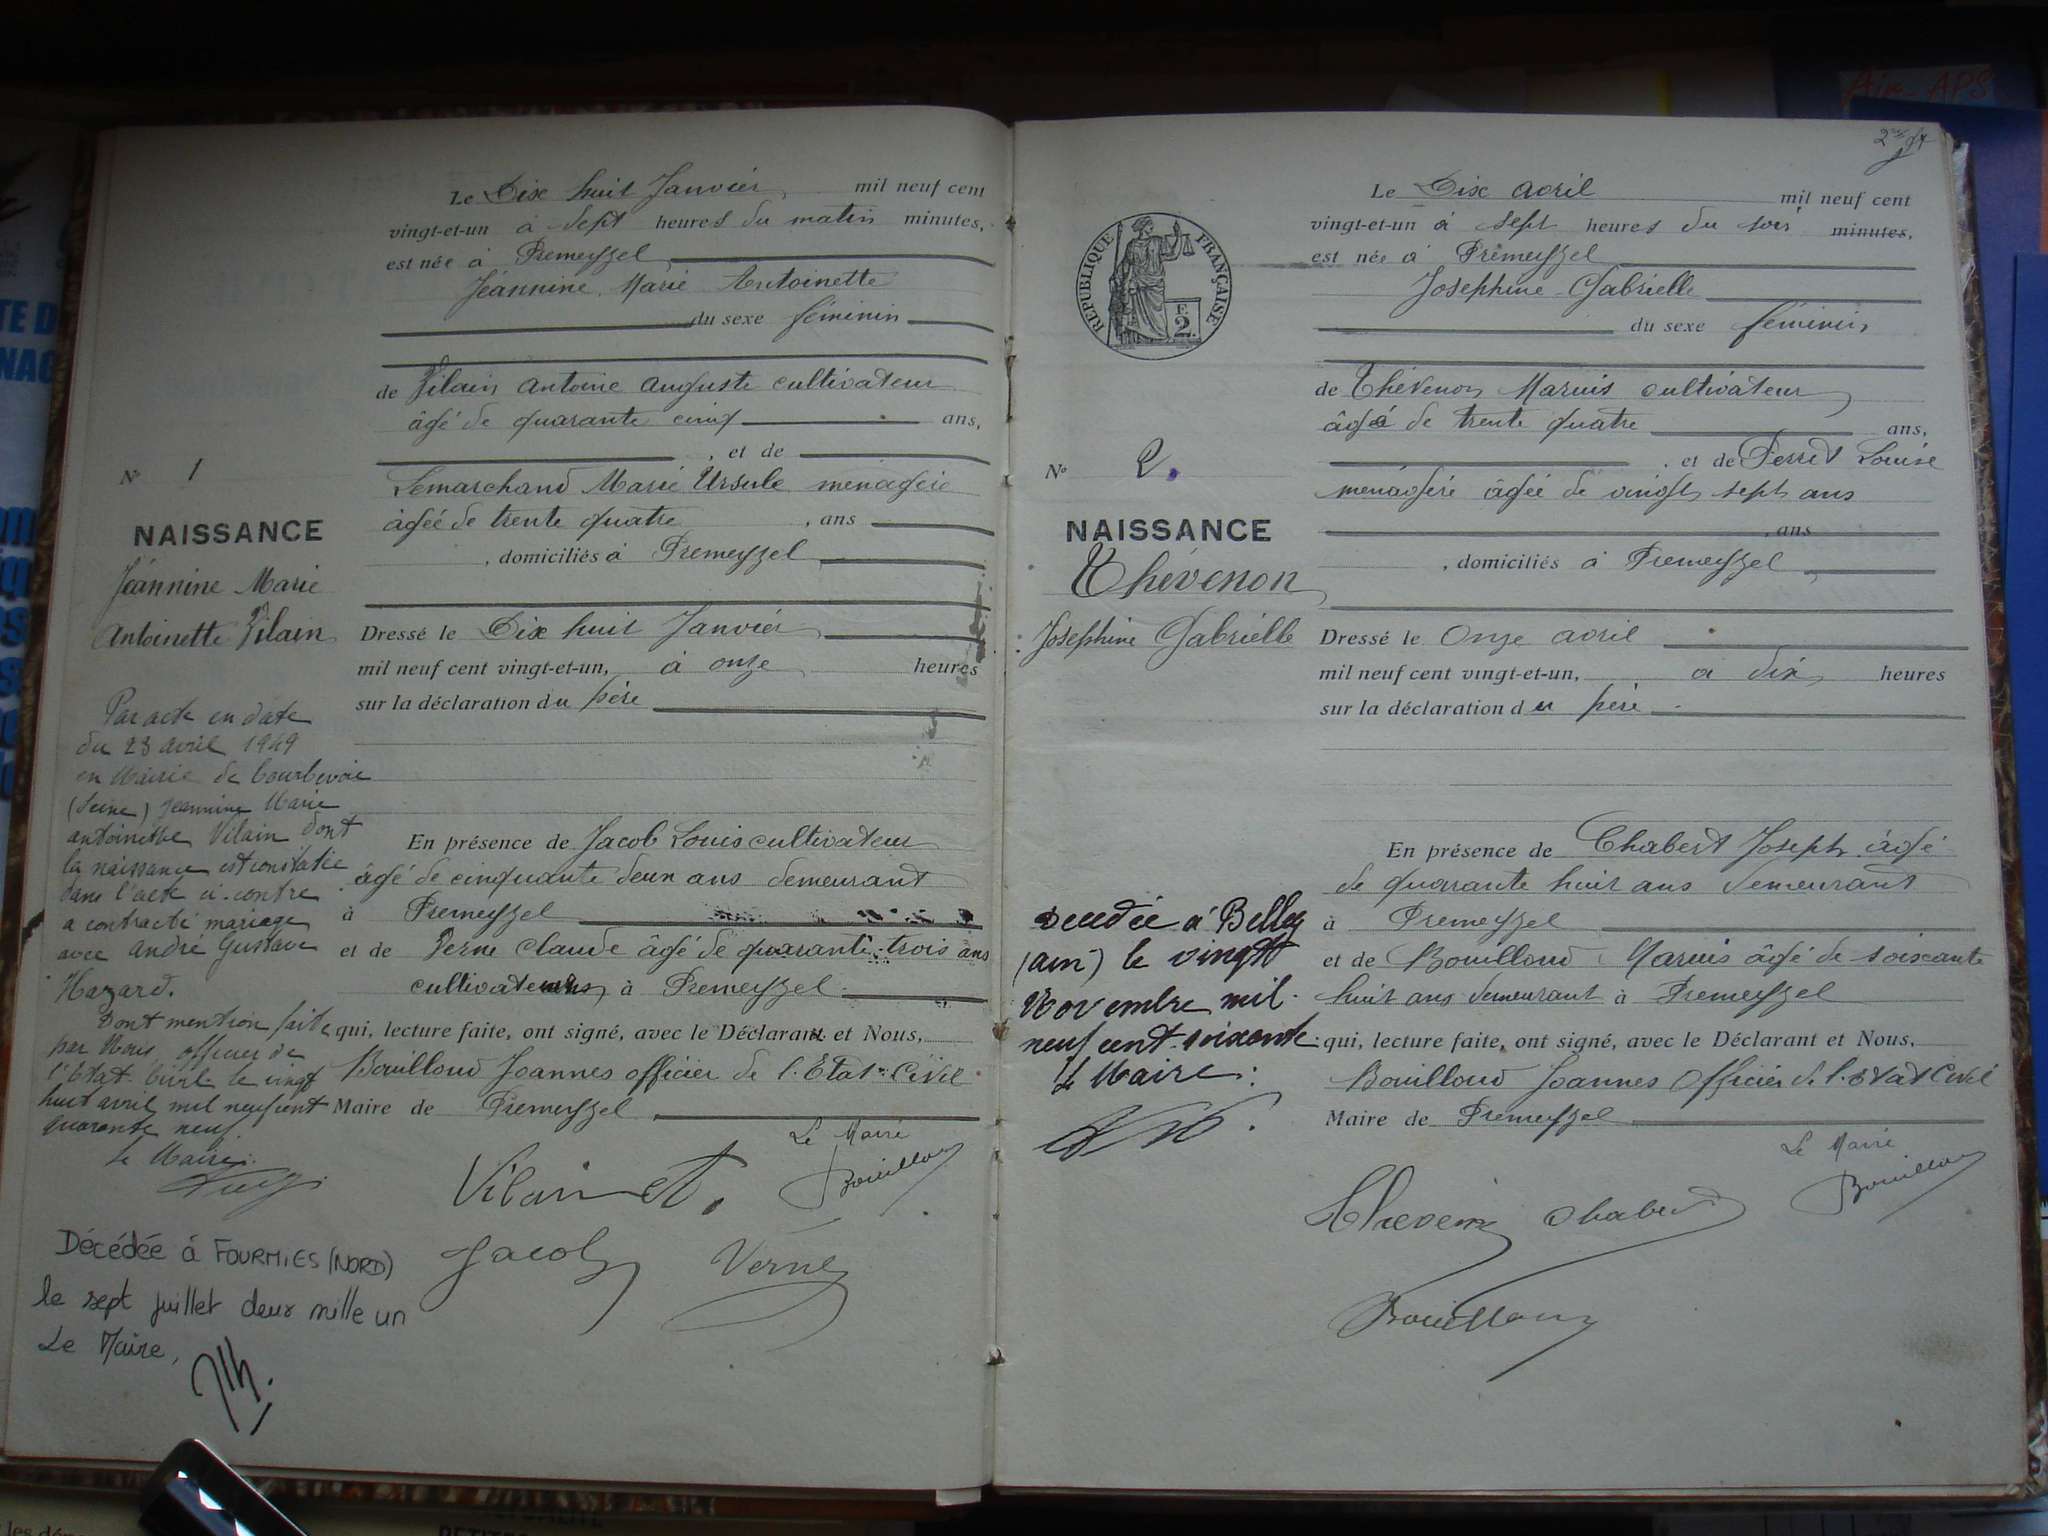 Le Dix huit Janvier mil neuf cent
vingt-et-un à sept heures du matin minutes,
est née à Premeyzel
Jéannine Marie Antoinette
du sexe féminin
de Vilain Antoine Auguste cultivateur
âgé de quarante cinq ans,
, et de
Lemarchand Marie Ursule ménagère
âgée de trente quatre , ans
, domiciliés à Premeyzel
Dressé le Dix huit Janvier
mil neuf cent vingt-et-un, à onze heures
sur la déclaration du père
En présence de Jacob Louis cultivateur
âgé de cinquante deux ans demeurant
à Premeyzel
et de Verne Claude âgé de quarante trois ans
cultivateurs à Premeyzel
qui, lecture faite, ont signé, avec le Déclarant et Nous,
Bouilloud Joannes officier de l'Etat Civil
Maire de Premeyzel
Le Maire
Vilain A. Bouilloud
Jacob Verne
N° 1
NAISSANCE
Jéannine Marie
Antoinette Vilain
Par acte en date
du 23 avril 1949
en Mairie de Courbevoie
(Seine) Jeannine Marie
antoinette Vilain dont
la naissance est constatée
dans l'acte ci-contre
a contracté mariage
avec André Gustave
Hazard.
Dont mention faite
par Nous officier de
l'Etat Civil le vingt
huit avril mil neuf cent
quarante neuf
Le Maire:
Décédée à FOURMIES (NORD)
le sept juillet deux mille un
Le Maire,
Le Dix avril mil neuf cent
vingt-et-un à sept heures du soir minutes,
est née à Premeyzel
Joséphine Gabrielle
du sexe féminin
de Thévenon Marius cultivateur
âgé de trente quatre ans,
, et de Perret Louise
ménagère âgée de vingt sept ans
, ans
, domiciliés à Premeyzel
Dressé le Onze avril
mil neuf cent vingt-et-un, à dix heures
sur la déclaration du père
En présence de Chabert Joseph âgé
de quarante huit ans demeurant
à Premeyzel
et de Bouilloud Marius âgé de soixante
huit ans demeurant à Premeyzel
qui, lecture faite, ont signé, avec le Déclarant et Nous,
Bouilloud Joannes Officier de l'Etat Civil
Maire de Premeyzel
Le Maire
Bouilloud
Thevenon Chabert
Bouilloud
RÉPUBLIQUE FRANÇAISE
F.
2.
N° 2.
NAISSANCE
Thévenon
Joséphine Gabrielle
Décédée à Belley
(ain) le vingt
Novembre mil
neuf cent soixante
Le Maire:
Ain APS